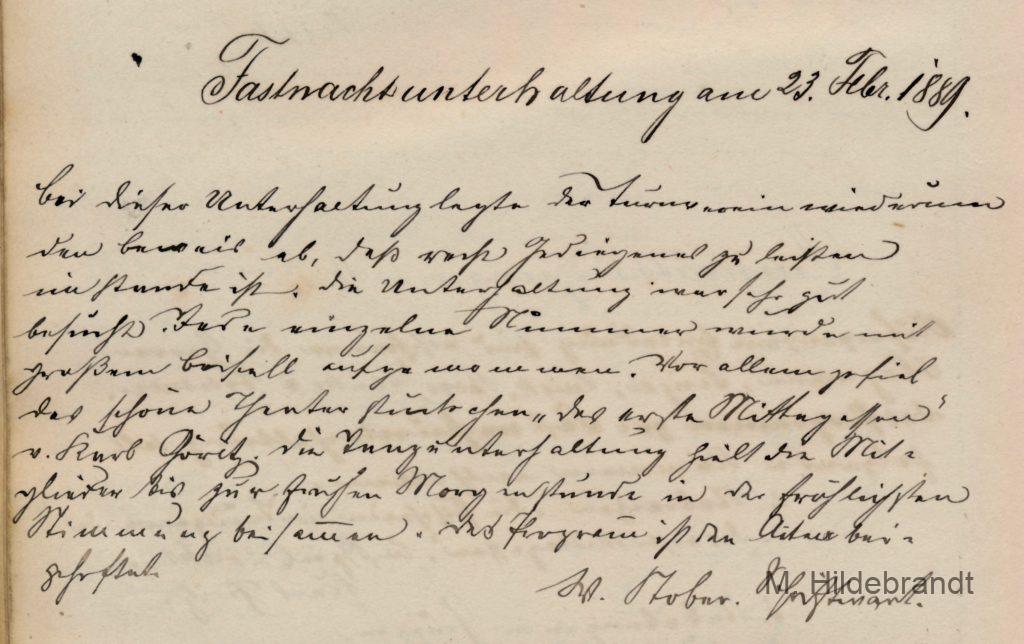 Fastnachtsunterhaltung am 23. Febr. 1889.
Bei dieser Unterhaltung legte der Turnverein wiederum
den Beweis ab, daß recht Gediegenes zu leisten
im stande ist. Die Unterhaltung war sehr gut
besucht. Jede einzelne Nummer wurde mit
großem Beifall aufgenommen. Vor allem gefiel
das schöne Theaterstückchen „das erste Mittagessen“
v. Karl Görlitz. Die Tanzunterhaltung hielt die Mit-
glieder bis zur frühen Morgenstunde in der fröhlichsten
Stimmung beisammen. Das Program̅ ist den Akten bei-
geheftet.
W. Stober. Schriftwart.
M. Hildebrandt